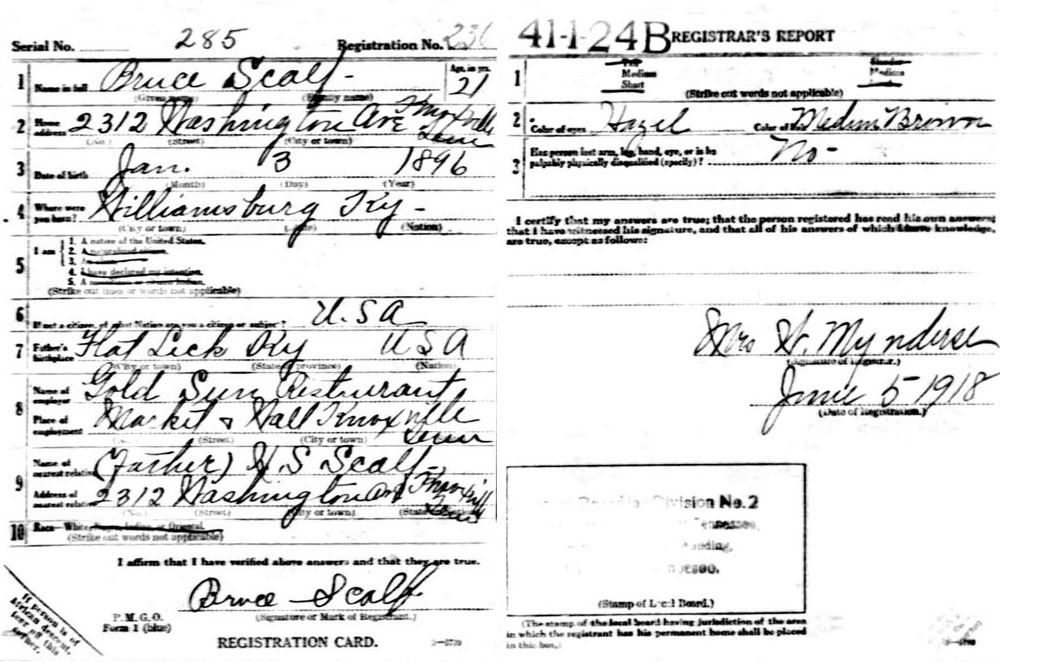 Serial No. 285 Registration No. 236
1 Bruce Scalf - Age, in yrs. 21
Name in full (Given name) (Family name)
2 Home address 2312 Washington Ave Knoxville Tenn
(No.) (Street) (City or town)
3 Jan. 3 1896
Date of birth (Month) (Day) (Year)
4 Where were you born? Williamsburg Ky -
(City or town) (Nation)
5 I am
1. A native of the United States.
2. A naturalized citizen.
3. An alien.
4. I have declared my intention.
5.
(Strike out lines or words not applicable)
6 U.S.A
If not a citizen, of what Nation are you a citizen or subject?
7 Father's birthplace Flat Lick Ky USA
(City or town) (State or province) (Nation)
8 Name of employer Gold Sun Restaurant
Place of employment Market & Wall Knoxville Tenn
(Street) (City or town)
9 Name of nearest relative (Father) H S Scalf
Address of nearest relative 2312 Washington Ave Knoxville Tenn
(No.) (Street) (City or town) (State or Nation)
10 Race—White, Negro, Indian, or Oriental.
(Strike out words not applicable)
I affirm that I have verified above answers and that they are true.
Bruce Scalf
P. M. G. O. (Signature or Mark of Registrant.)
Form 1 (blue)
REGISTRATION CARD.
If person is of
African descent,
tear off this
corner.
41-1-24 B REGISTRAR'S REPORT
1 Tall Slender
Medium Medium
Short
(Strike out words not applicable)
2 Color of eyes Hazel Color of hair Medium Brown
3 Has person lost arm, leg, hand, eye, or is he
palpably physically disqualified (specify)? No -
I certify that my answers are true; that the person registered has read his own answers;
that I have witnessed his signature, and that all of his answers of which I have knowledge,
are true, except as follows:
Mrs H. Mynderse
(Signature of Registrar.)
June 5 1918
(Date of Registration.)
Division No. 2
Tennessee,
Building,
(Stamp of Local Board.)
(The stamp of the local board having jurisdiction of the area
in which the registrant has his permanent home shall be placed
in this box.)